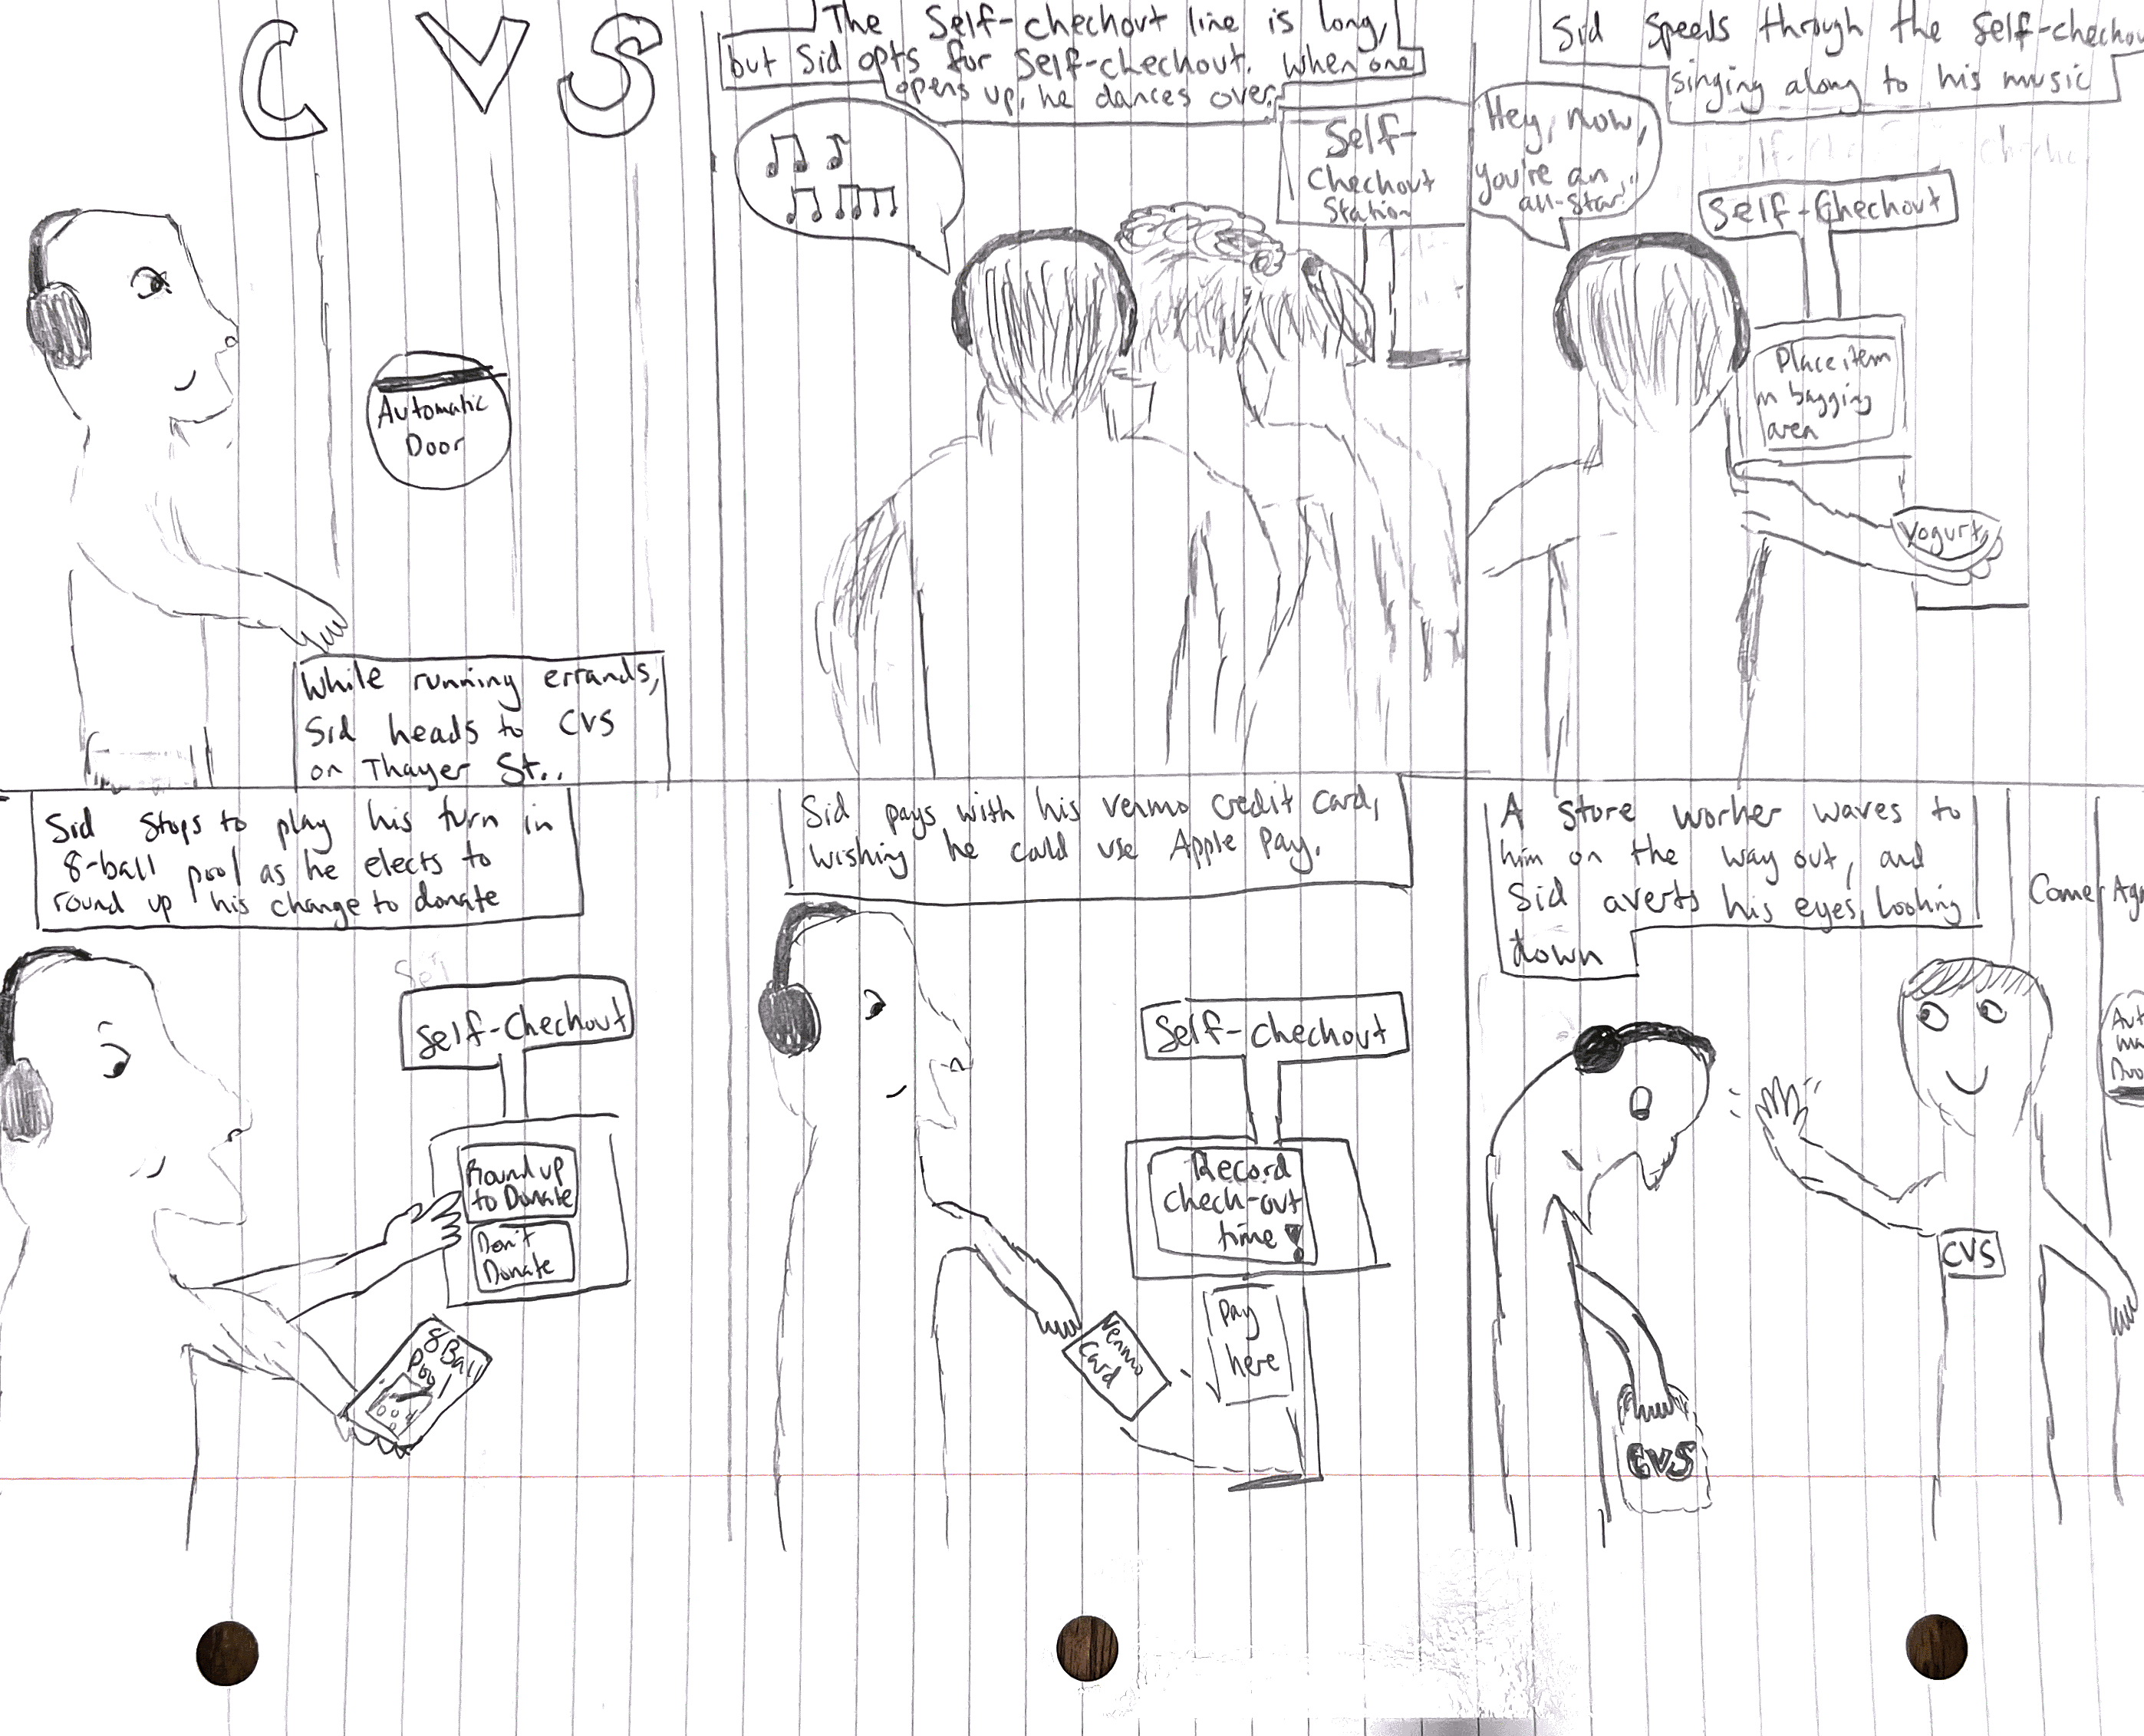 CVS
Automatic
Door
While running errands,
Sid heads to CVS
on Thayer St..
The Self-checkout line is long,
but Sid opts for Self-checkout. When one
opens up, he dances over.
Self-
Checkout
Station
Sid Speeds through the Self-checkou
singing along to his music
Hey, now,
you're an
all-star!
Self-Checkout
Place item
in bagging
area
Yogurt
Sid stops to play his turn in
8-ball pool as he elects to
round up his change to donate
Self-Checkout
Round up
to Donate
Don't
Donate
8 Ball
Pool
Sid pays with his venmo credit card,
wishing he could use Apple Pay.
Self-checkout
Record
check-out
time!
Pay
here
Venmo
Card
A store worker waves to
him on the way out, and
Sid averts his eyes, looking
down
Come Aga
Aut
ma
Doo
CVS
CVS